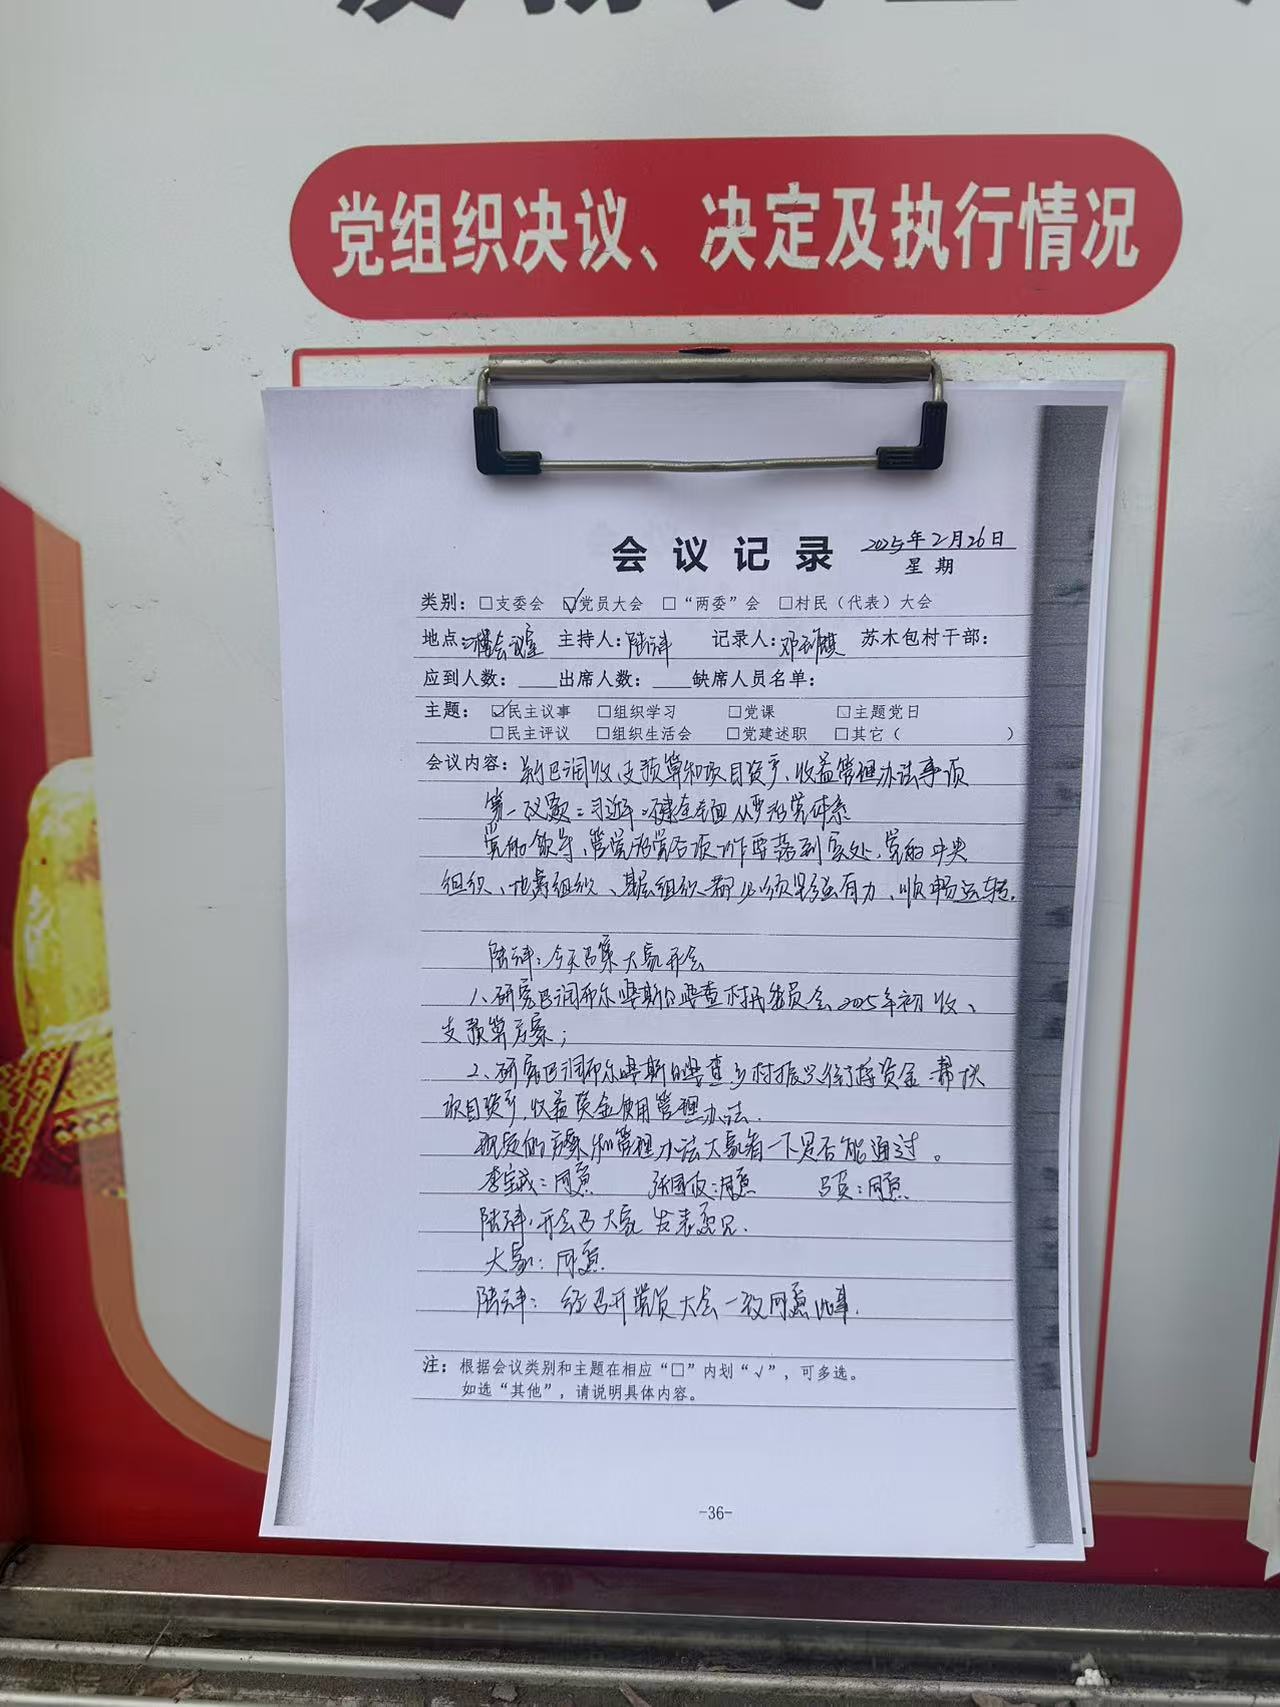 党组织决议、决定及执行情况
会议记录 2025年2月26日
星期
类别：□支委会 ☑党员大会 □“两委”会 □村民（代表）大会
地点：二楼会议室 主持人：陆 记录人：邓 苏木包村干部：
应到人数：____出席人数：____缺席人员名单：
主题：☑民主议事 □组织学习 □党课 □主题党日
□民主评议 □组织生活会 □党建述职 □其它（ ）
会议内容： 收支预算和项目资产、收益管理办法事项
第一议题：习近平：健全全面从严治党体系
党的领导、管党治党各项工作要落到实处，党的中央
组织、地方组织、基层组织都必须坚强有力、顺畅运转。
陆：今天召集大家开会
1、研究巴润布尔嘎斯台嘎查村民委员会2025年初收、
支预算方案；
2、研究巴润布尔嘎斯台嘎查乡村振兴衔接资金帮扶
项目资产，收益资金使用管理办法．
拟定的方案和管理办法大家看一下是否能通过。
李宝成：同意 张国：同意 ：同意
陆：开会召大家发表意见．
大家：同意
陆：经召开党员大会一致同意此事．
注：根据会议类别和主题在相应“□”内划“√”，可多选。
如选“其他”，请说明具体内容。
-36-